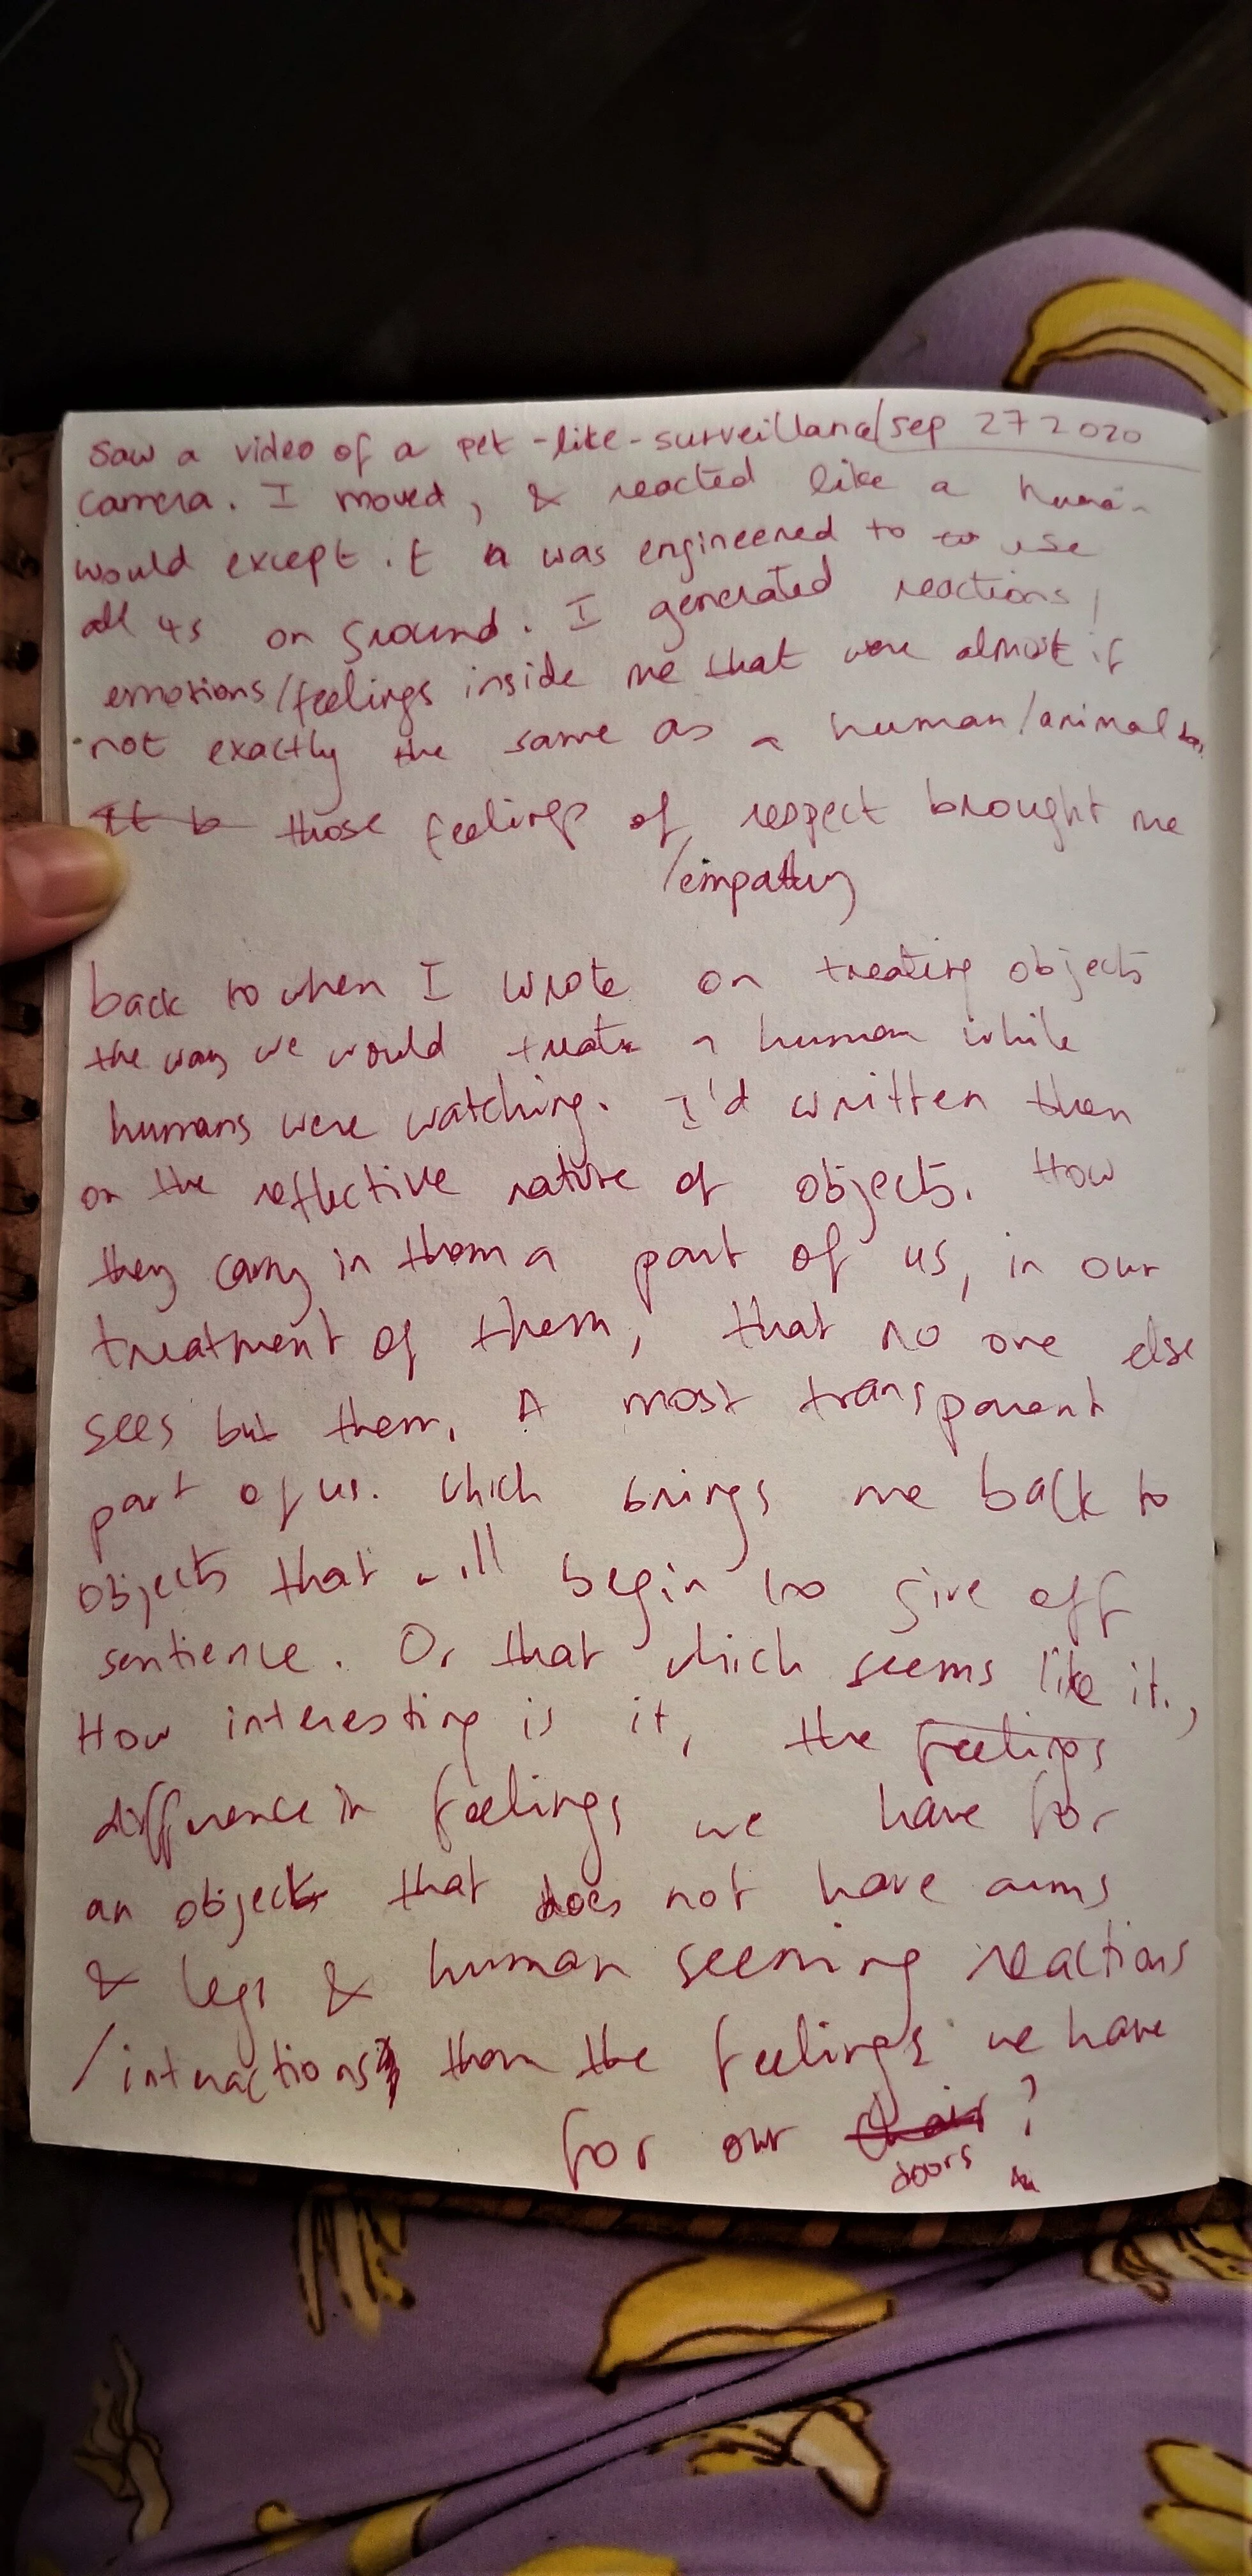 Saw a video of a pet-like-surveillance/sep 27 2020
camera. I moved, & reacted like a human
would except it was engineered to to use
all 4s on ground. I generated reactions/
emotions/feelings inside me that were almost if
not exactly the same as a human/animal
It b those feelings of respect brought me
/empathy
back to when I wrote on treating objects
the way we would treat a human while
humans were watching. I'd written then
on the reflective nature of objects. How
they carry in them a part of us, in our
treatment of them, that no one else
sees but them. A most transparent
part of us. which brings me back to
objects that will begin to give off
sentience. Or that which seems like it.,
How interesting is it, the feelings
difference in feelings we have for
an object that does not have arms
& legs & human seeming reactions
/interactions than the feelings we have
for our chair ?
doors